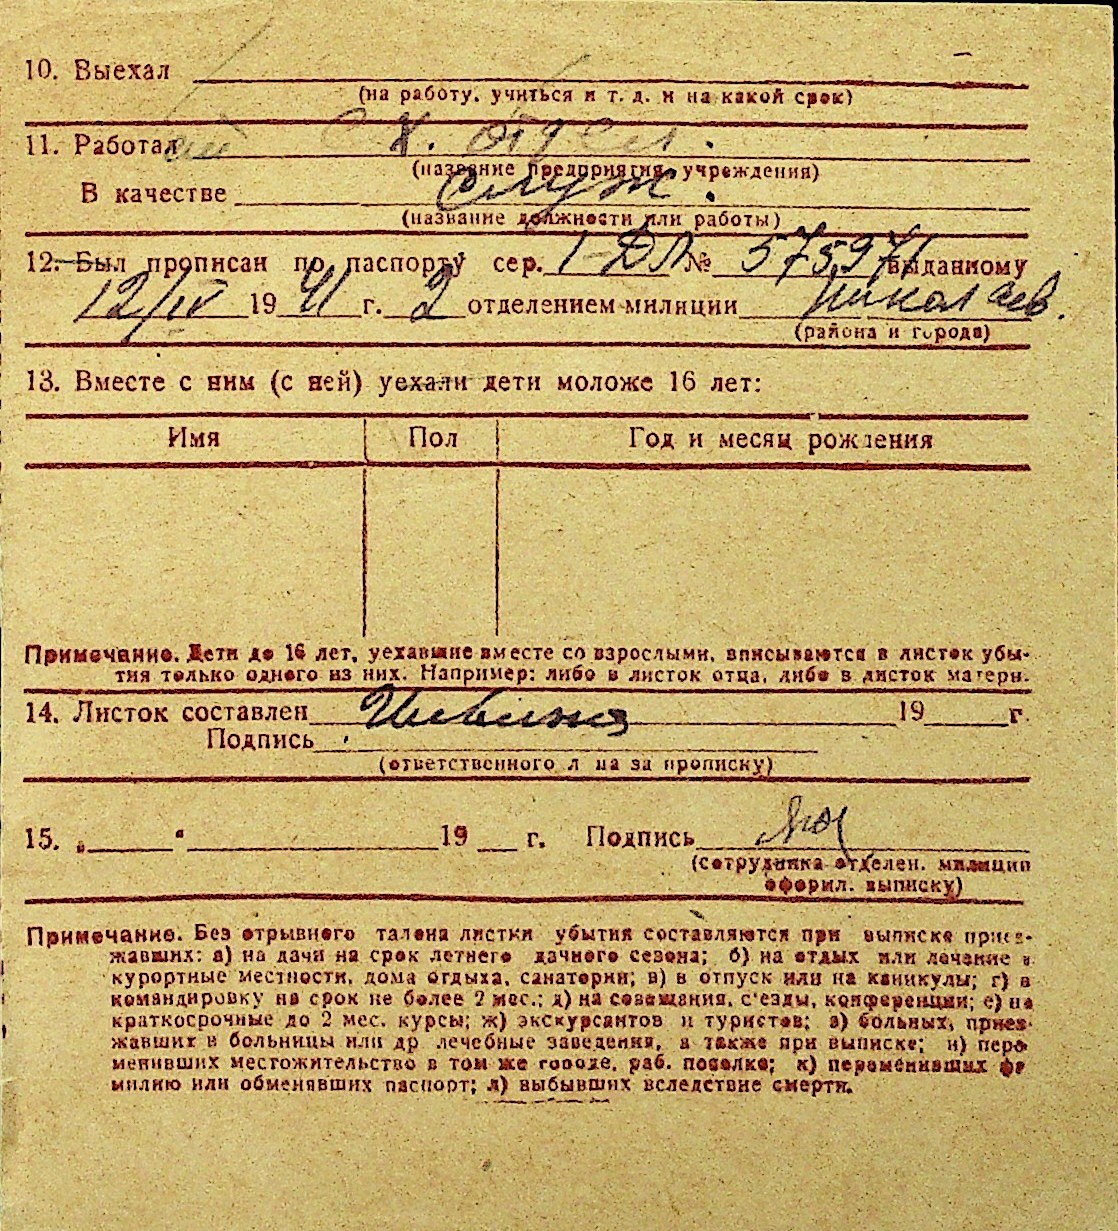 10. Выехал
(на работу, учиться и т. д. и на какой срок)
11. Работал
(название предприятия, учреждения)
В качестве служ.
(название должности или работы)
12. Был прописан по паспорту сер. I-ДЛ № 575971 выданному
12/IV 1941 г. 2 отделением милиции Николаев.
(района и города)
13. Вместе с ним (с ней) уехали дети моложе 16 лет:
Имя Пол Год и месяц рождения
Примечание. Дети до 16 лет, уехавшие вместе со взрослыми, вписываются в листок убы-
тия только одного из них. Например: либо в листок отца, либо в листок матери.
14. Листок составлен 19 г.
Подпись
(ответственного лица за прописку)
15. „ " 19 г. Подпись
(сотрудника отделен. милиции
оформил. выписку)
Примечание. Без отрывного талона листки убытия составляются при выписке приез-
жавших: а) на дачи на срок летнего дачного сезона; б) на отдых или лечение в
курортные местности, дома отдыха, санатории; в) в отпуск или на каникулы; г) в
командировку на срок не более 2 мес.; д) на совещания, с'езды, конференции; е) на
краткосрочные до 2 мес. курсы; ж) экскурсантов и туристов; з) больных, приез-
жавших в больницы или др лечебные заведения, а также при выписке; и) пере
менивших местожительство в том же городе, раб. поселке; к) переменивших фа
милию или обменявших паспорт; л) выбывших вследствие смерти.